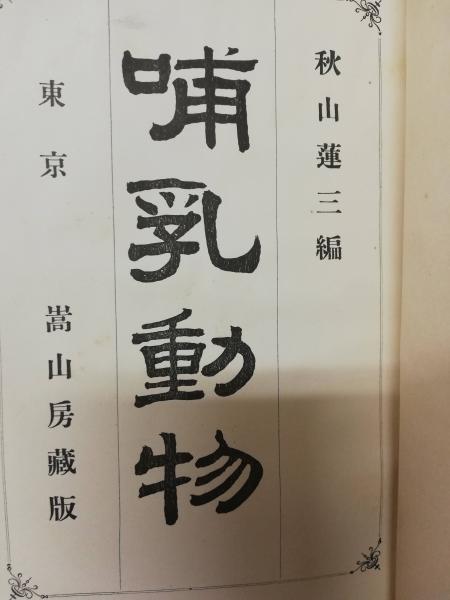 秋山蓮三編
哺乳動物
東京　嵩山房藏版